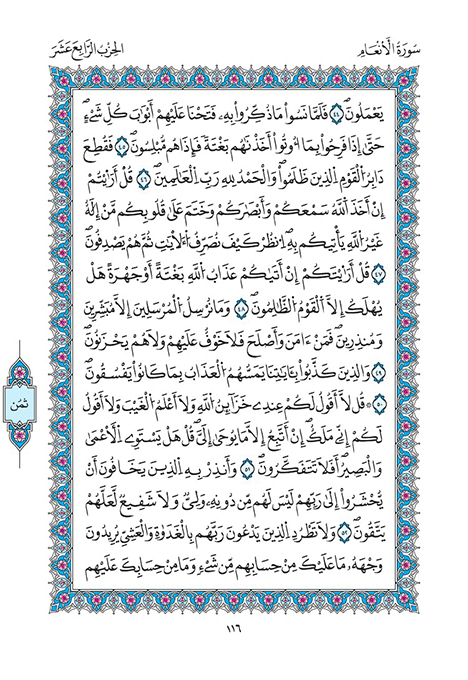 سُورَةُ الْأَنْعَامِ
الحِزْبُ الرَّابِعَ عَشَرَ
يَعْمَلُونَۖ ٤٤ فَلَمَّا نَسُواْ مَا ذُكِّرُواْ بِهِۦ فَتَحْنَا عَلَيْهِمُۥٓ أَبْوَٰبَ كُلِّ شَےْءٍ
حَتَّىٰٓ إِذَا فَرِحُواْ بِمَآ أُوتُوٓاْ أَخَذْنَٰهُم بَغْتَةً فَإِذَا هُم مُّبْلِسُونَۖ ٤٥ فَقُطِعَ
دَابِرُ اُ۬لْقَوْمِ اِ۬لذِينَ ظَلَمُواْۖ وَالْحَمْدُ لِلهِ رَبِّ اِ۬لْعَٰلَمِينَۖ ٤٦ قُلَ اَرَٰٓيْتُمُۥٓ
إِنَ اَخَذَ اَ۬للَّهُ سَمْعَكُمْ وَأَبْصَٰرَكُمْ وَخَتَمَ عَلَىٰ قُلُوبِكُم مَّنِ اِلَٰهٌ
غَيْرُ اُ۬للَّهِ يَاتِيكُم بِهِۖ اِ۟نظُرْ كَيْفَ نُصَرِّفُ اُ۬لَايَٰتِ ثُمَّ هُمْ يَصْدِفُونَۖ
٤٧ قُلَ اَرَٰٓيْتَكُمُۥٓ إِنَ اَت۪يٰكُمْ عَذَابُ اُ۬للَّهِ بَغْتَةً اَوْ جَهْرَةً هَلْ
يُهْلَكُ إِلَّا اَ۬لْقَوْمُ اُ۬لظَّٰلِمُونَۖ ٤٨ وَمَا نُرْسِلُ اُ۬لْمُرْسَلِينَ إِلَّا مُبَشِّرِينَ
وَمُنذِرِينَۖ فَمَنَ اٰمَنَ وَأَصْلَحَ فَلَا خَوْفٌ عَلَيْهِمْ وَلَا هُمْ يَحْزَنُونَۖ
٤٩ وَالذِينَ كَذَّبُواْ بِـَٔايَٰتِنَا يَمَسُّهُمُ اُ۬لْعَذَابُ بِمَا كَانُواْ يَفْسُقُونَۖ
٥٠ قُل لَّآ أَقُولُ لَكُمْ عِندِے خَزَآئِنُ اُ۬للَّهِ وَلَآ أَعْلَمُ اُ۬لْغَيْبَ وَلَآ أَقُولُ
لَكُمُۥٓ إِنِّے مَلَكٌۖ اِنَ اَتَّبِعُ إِلَّا مَا يُوح۪ىٰٓ إِلَيَّۖ قُلْ هَلْ يَسْتَوِے اِ۬لَاعْم۪ىٰ
وَالْبَصِيرُۖ أَفَلَا تَتَفَكَّرُونَۖ ٥١ وَأَنذِرْ بِهِ اِ۬لذِينَ يَخَافُونَ أَنْ
يُّحْشَرُوٓاْ إِلَىٰ رَبِّهِمْ لَيْسَ لَهُم مِّن دُونِهِۦ وَلِيٌّ وَلَا شَفِيعٌ لَّعَلَّهُمْ
يَتَّقُونَۖ ٥٢ وَلَا تَطْرُدِ اِ۬لذِينَ يَدْعُونَ رَبَّهُم بِالْغَدَوٰةِ وَالْعَشِيِّ يُرِيدُونَ
وَجْهَهُۥۖ مَا عَلَيْكَ مِنْ حِسَابِهِم مِّن شَےْءٍ وَمَا مِنْ حِسَابِكَ عَلَيْهِم
ثُمُن
١١٦